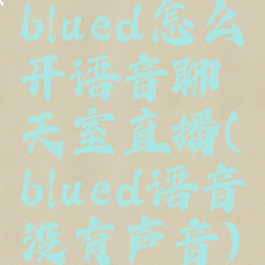 blued怎么
开语音聊
天室直播(
blued语音
没有声音)